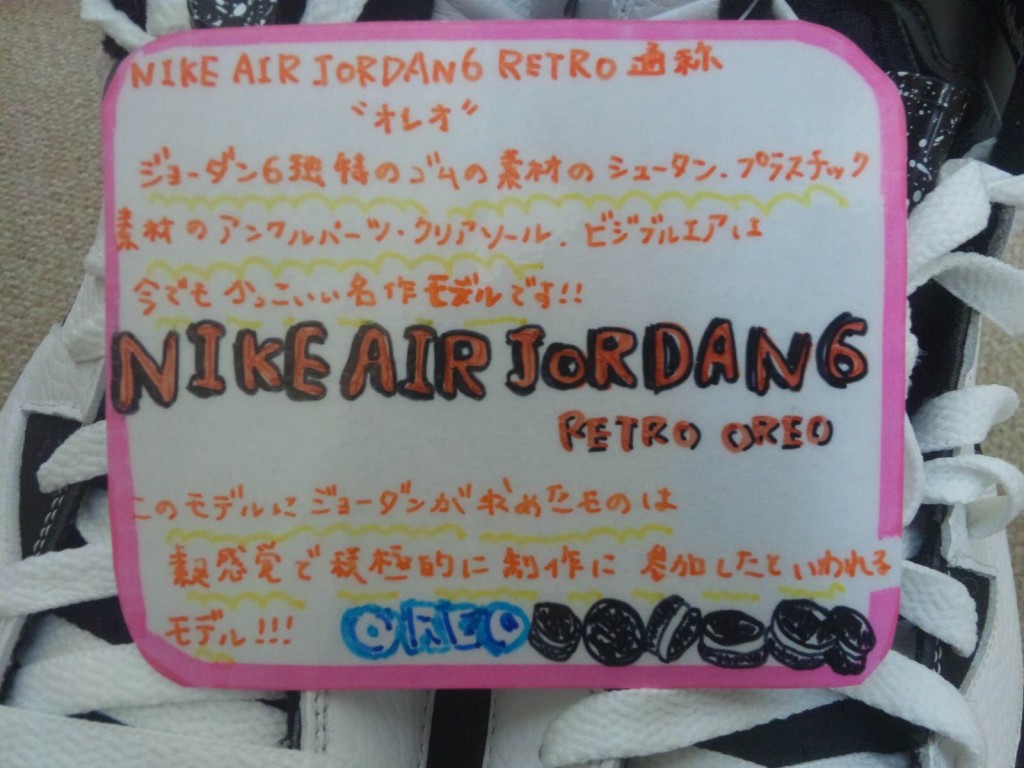 NIKE AIR JORDAN6 RETRO 通称
"オレオ"
ジョーダン6独特のゴムの素材のシュータン、プラスチック
素材のアンクルパーツ・クリアソール、ビジブルエアは
今でもかっこいい名作モデルです!!
NIKE AIR JORDAN 6
RETRO OREO
このモデルにジョーダンが求めたものは
感覚で積極的に制作に参加したといわれる
モデル!!!
OREO